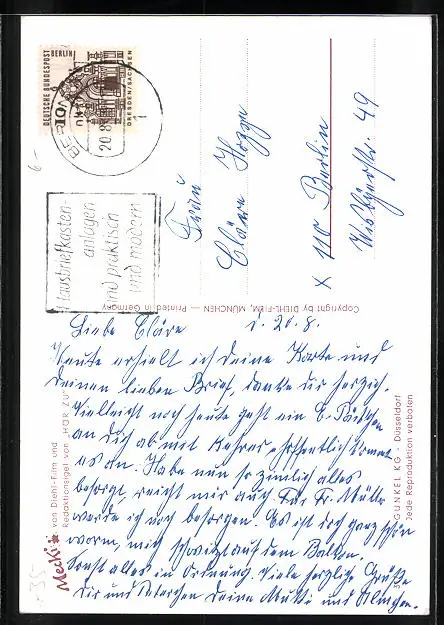 DEUTSCHE BUNDESPOST BERLIN
DRESDEN/SACHSEN
BERLIN
20.8
Hausbriefkasten-
anlagen
sind praktisch
und modern
Frau
Cläre Hoppe
X 110 Berlin
49
Copyright by DIEHL-FILM, MÜNCHEN — Printed in Germany
Liebe Cläre d. 20.8.
Heute erhielt ich deine Karte und
deinen lieben Brief, danke dir herzlich.
Vielleicht noch heute geht ein E. Päckchen
an dich ab mit hoffentlich kommt
es an. Habe nun so ziemlich alles
besorgt, reicht mir auch. Für Fr.
werde ich noch besorgen. Es ist doch ganz schön
warm, mich schwitzt auf dem Balkon.
Sonst alles in Ordnung. Viele herzliche Grüße
dir und deine Mutti und
Mecki
von Diehl-Film und
Redaktionsigel von „HÖR ZU"
GUNKEL KG - Düsseldorf
Jede Reproduktion verboten
35